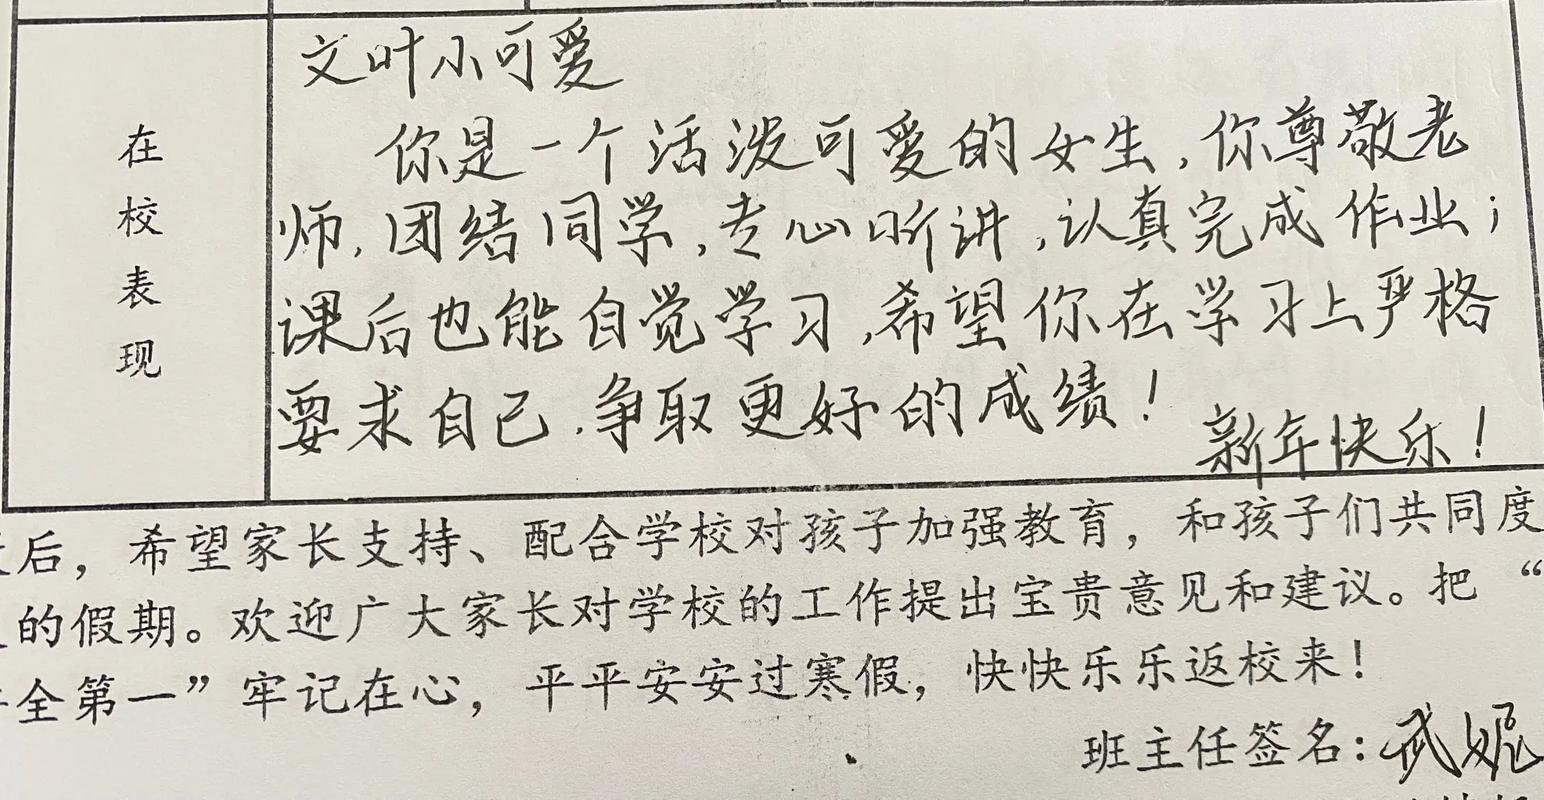 文叶小可爱
在校表现
你是一个活泼可爱的女生,你尊敬老
师,团结同学,专心听讲,认真完成作业;
课后也能自觉学习,希望你在学习上严格
要求自己,争取更好的成绩!
新年快乐!
后，希望家长支持、配合学校对孩子加强教育，和孩子们共同度
的假期。欢迎广大家长对学校的工作提出宝贵意见和建议。把“
全第一”牢记在心，平平安安过寒假，快快乐乐返校来！
班主任签名：武妮